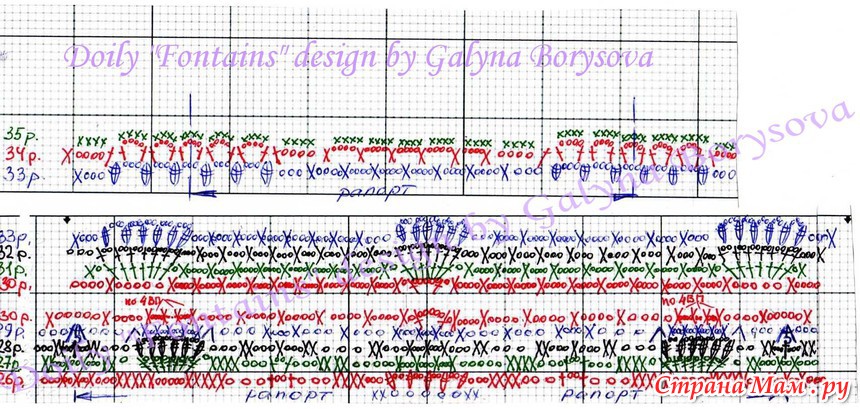 Doily "Fontains" design by Galyna Borysova
35р.
34р.
33р.
рапорт
Doily "Fontains" design by Galyna Borysova
33р.
32р.
31р.
30р.
по 4ВП
по 4ВП
30р.
29р.
28р.
27р.
26р.
рапорт
рапорт
Страна Мам.ру